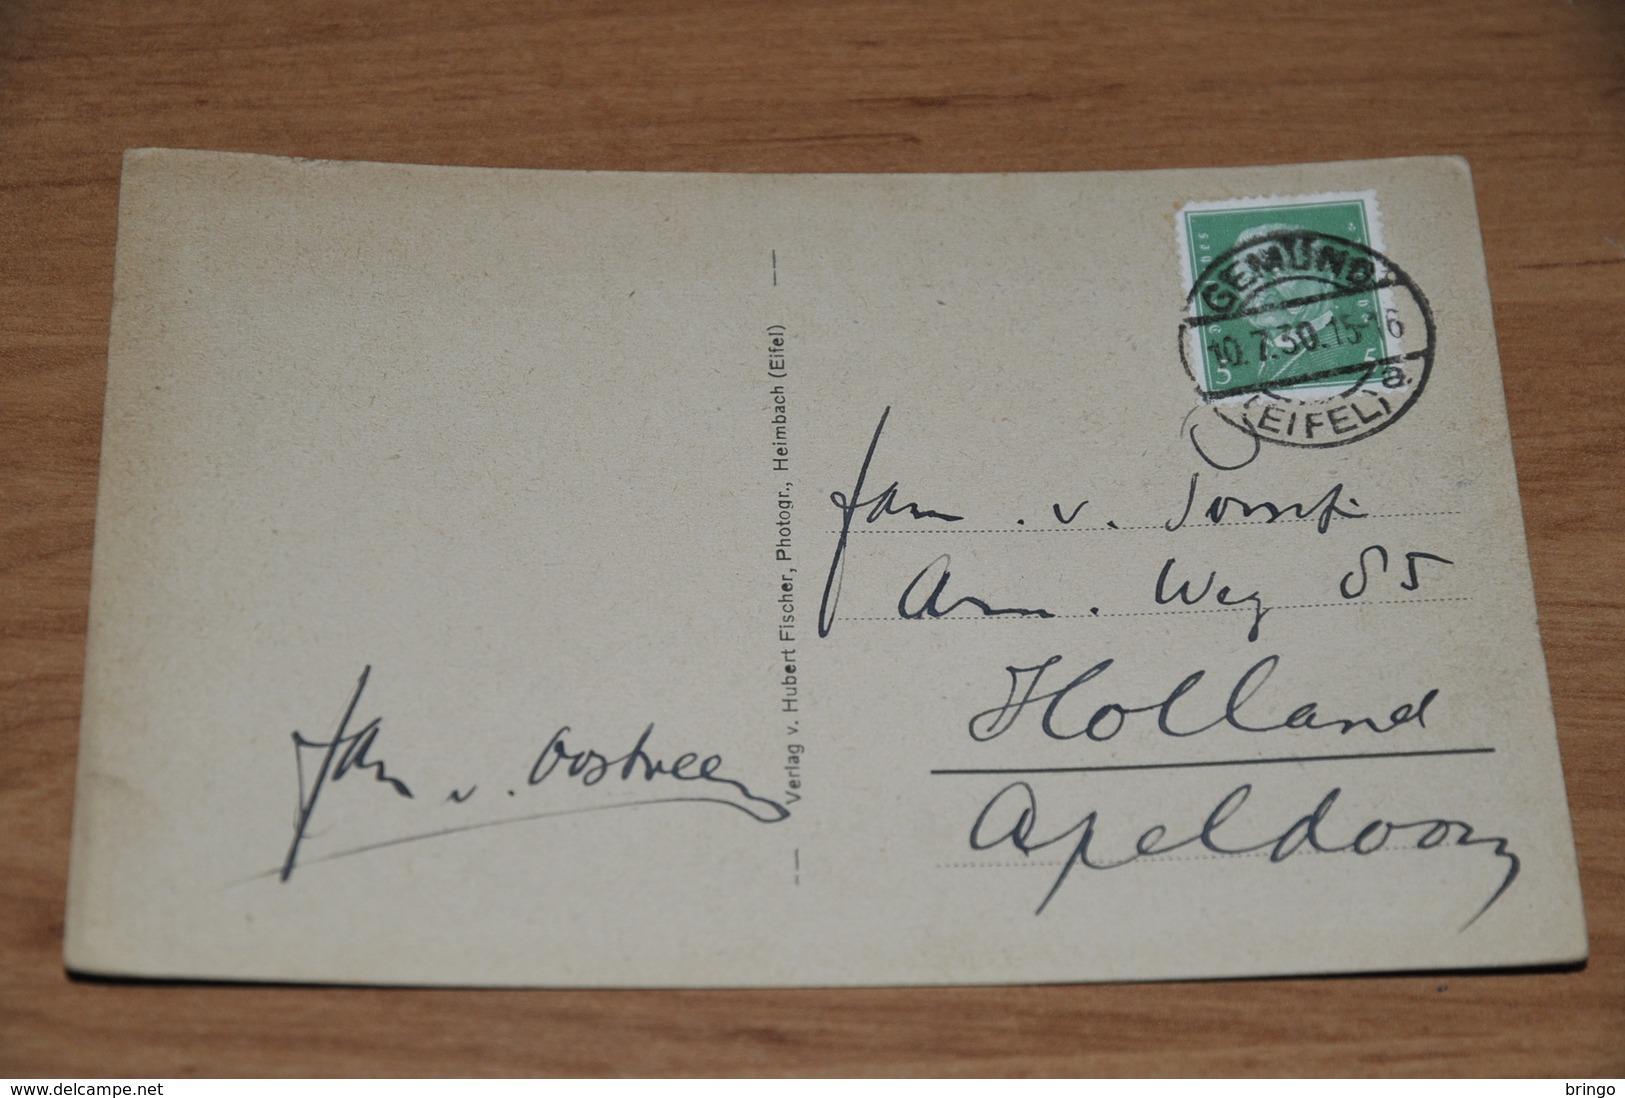 GEMÜND
10.7.30.15-16
a.
(EIFEL)
5 5
Verlag v. Hubert Fischer, Photogr., Heimbach (Eifel)
Fam. v.
Arn. Weg 85
Holland
Apeldoorn
Jan v. Oostveen
www.delcampe.net
bringo